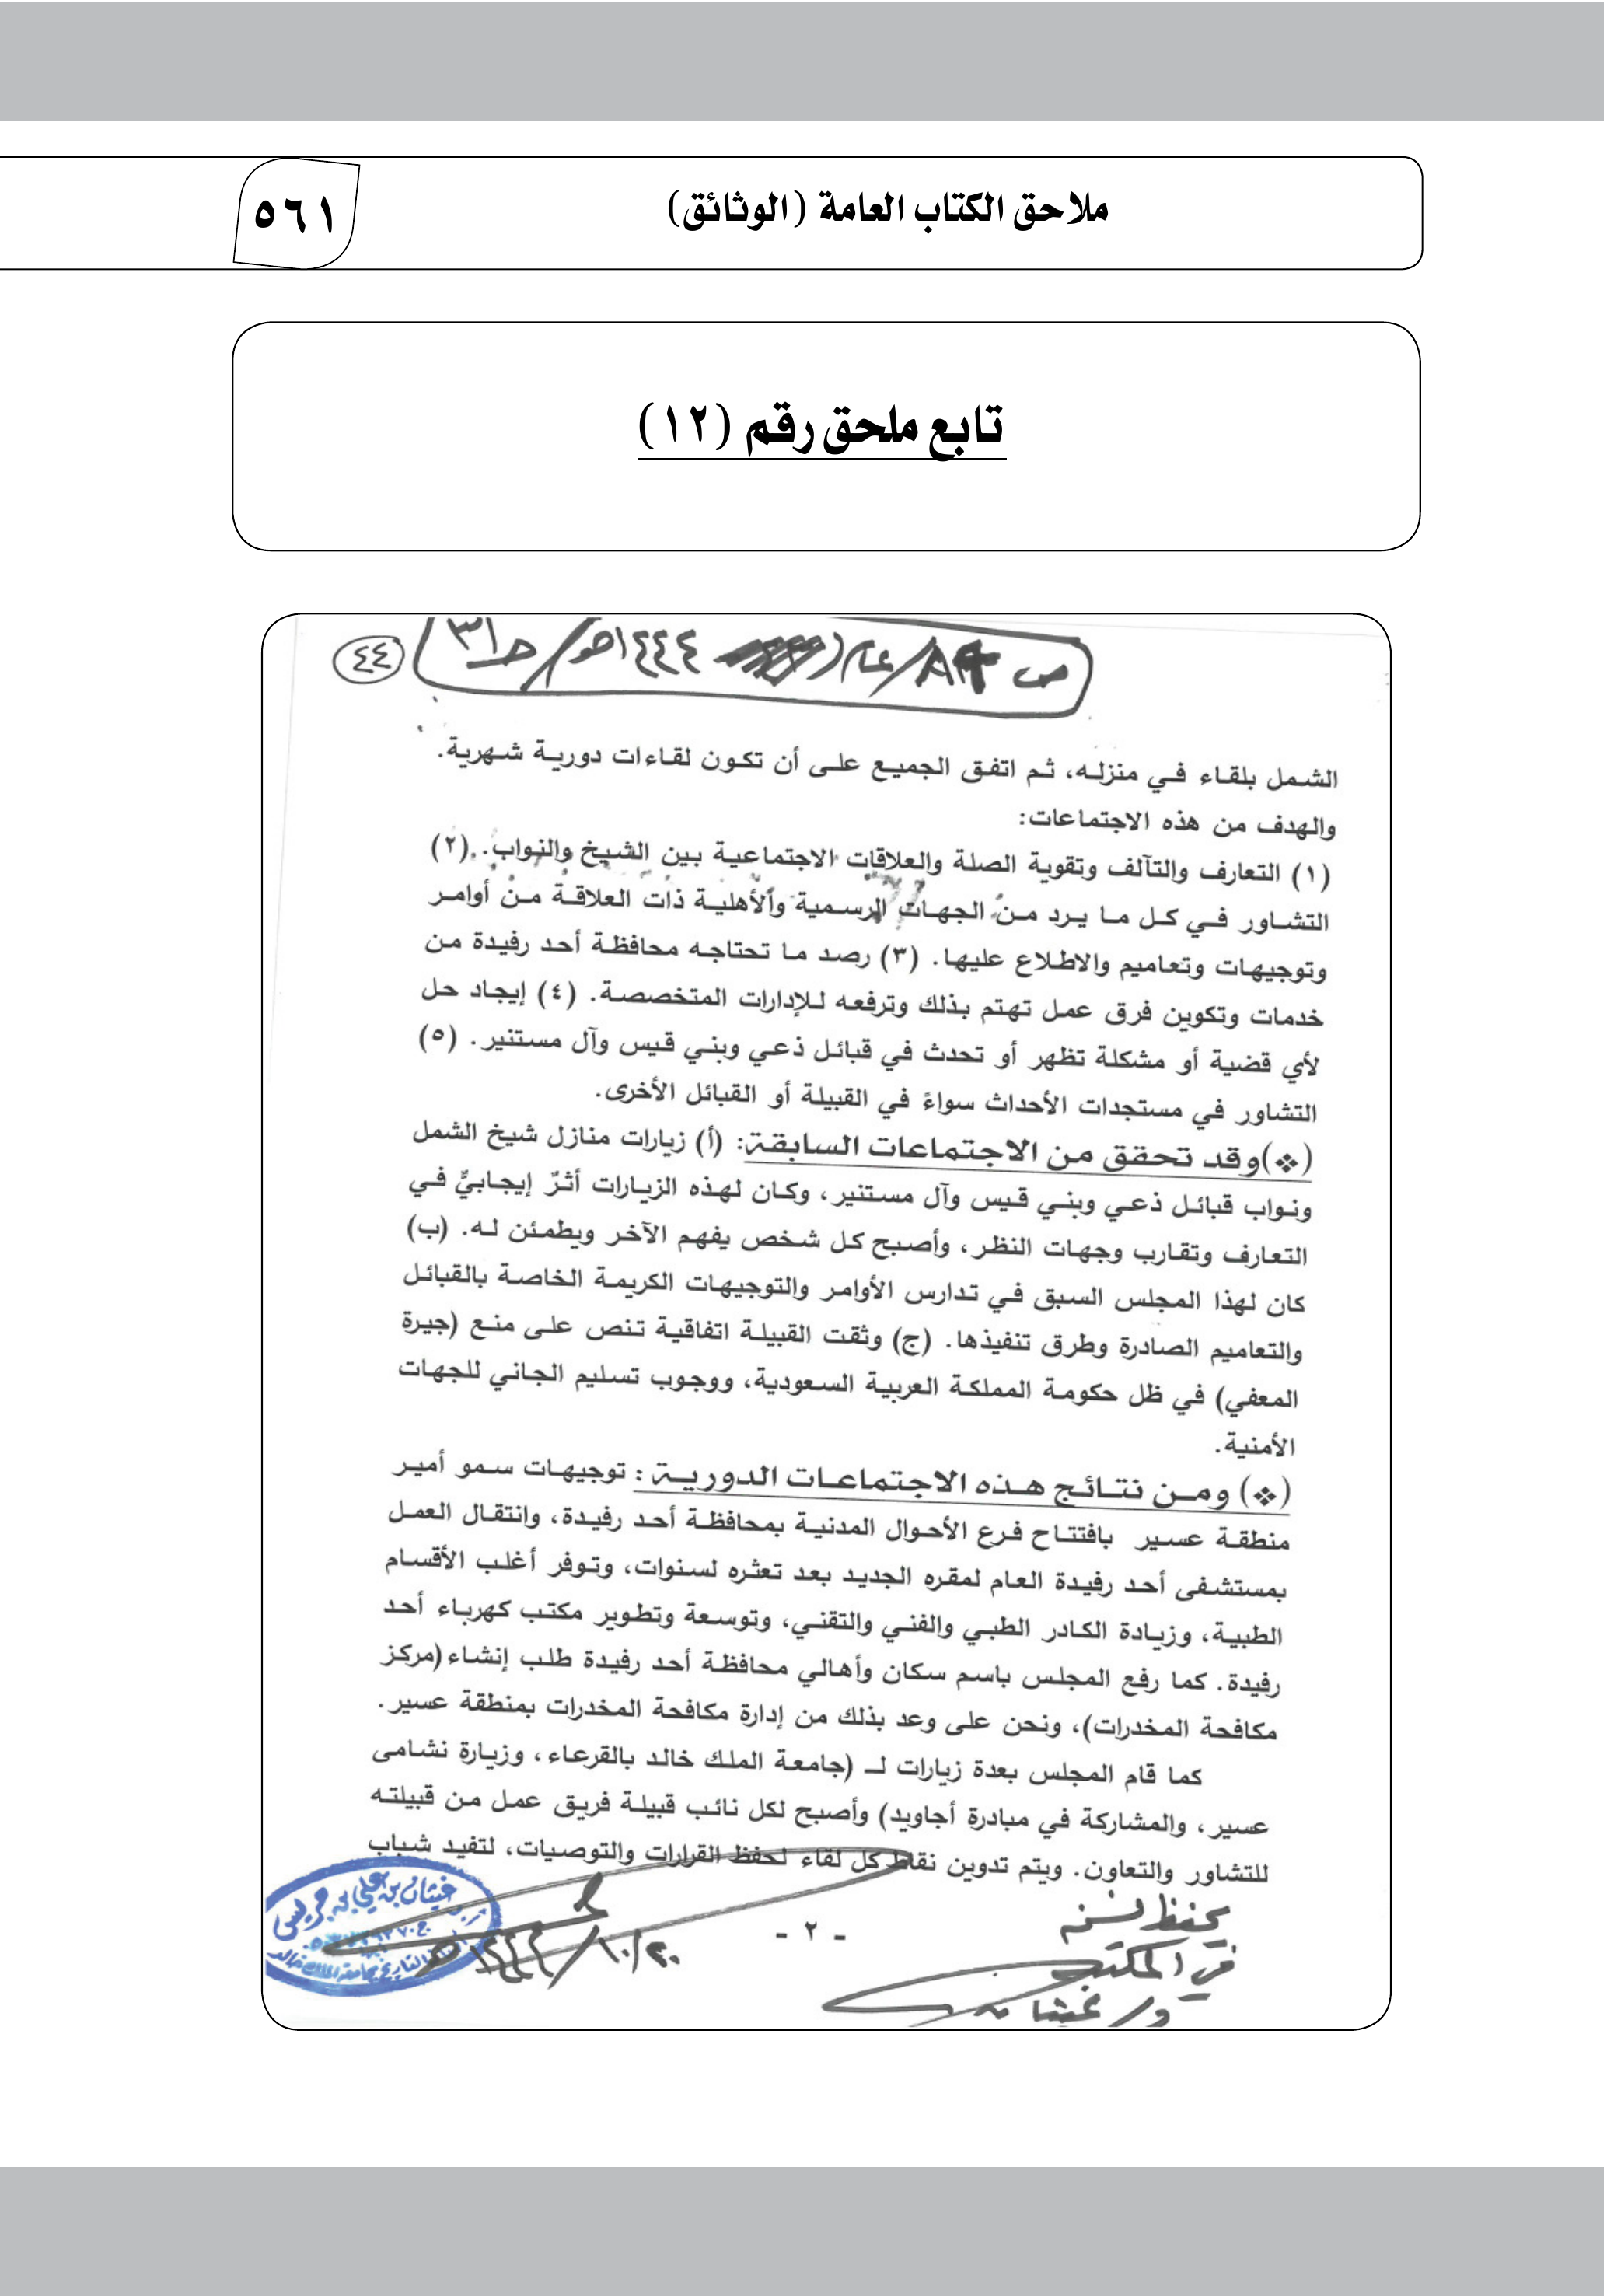 ملاحق الكتاب العامة (الوثائق)
٥٦١
تابع ملحق رقم (١٢)
٤٤
الشمل بلقاء في منزله، ثم اتفق الجميع على أن تكون لقاءات دورية شهرية.
والهدف من هذه الاجتماعات:
(١) التعارف والتآلف وتقوية الصلة والعلاقات الاجتماعية بين الشيخ والنواب. (٢)
التشاور في كل ما يرد من الجهات الرسمية والأهلية ذات العلاقة من أوامر
وتوجيهات وتعاميم والاطلاع عليها. (٣) رصد ما تحتاجه محافظة أحد رفيدة من
خدمات وتكوين فرق عمل تهتم بذلك وترفعه للإدارات المتخصصة. (٤) إيجاد حل
لأي قضية أو مشكلة تظهر أو تحدث في قبائل ذعي وبني قيس وآل مستنير. (٥)
التشاور في مستجدات الأحداث سواءً في القبيلة أو القبائل الأخرى.
(❖)وقد تحقق من الاجتماعات السابقة: (أ) زيارات منازل شيخ الشمل
ونواب قبائل ذعي وبني قيس وآل مستنير، وكان لهذه الزيارات أثرٌ إيجابيٌّ في
التعارف وتقارب وجهات النظر، وأصبح كل شخص يفهم الآخر ويطمئن له. (ب)
كان لهذا المجلس السبق في تدارس الأوامر والتوجيهات الكريمة الخاصة بالقبائل
والتعاميم الصادرة وطرق تنفيذها. (ج) وثقت القبيلة اتفاقية تنص على منع (جيرة
المعفي) في ظل حكومة المملكة العربية السعودية، ووجوب تسليم الجاني للجهات
الأمنية.
(❖) ومن نتائج هذه الاجتماعات الدورية: توجيهات سمو أمير
منطقة عسير بافتتاح فرع الأحوال المدنية بمحافظة أحد رفيدة، وانتقال العمل
بمستشفى أحد رفيدة العام لمقره الجديد بعد تعثره لسنوات، وتوفر أغلب الأقسام
الطبية، وزيادة الكادر الطبي والفني والتقني، وتوسعة وتطوير مكتب كهرباء أحد
رفيدة. كما رفع المجلس باسم سكان وأهالي محافظة أحد رفيدة طلب إنشاء (مركز
مكافحة المخدرات)، ونحن على وعد بذلك من إدارة مكافحة المخدرات بمنطقة عسير.
كما قام المجلس بعدة زيارات لـ (جامعة الملك خالد بالقرعاء، وزيارة نشامى
عسير، والمشاركة في مبادرة أجاويد) وأصبح لكل نائب قبيلة فريق عمل من قبيلته
للتشاور والتعاون. ويتم تدوين نقاط كل لقاء لحفظ القرارات والتوصيات، لتفيد شباب
- ٢ -
في المكتب